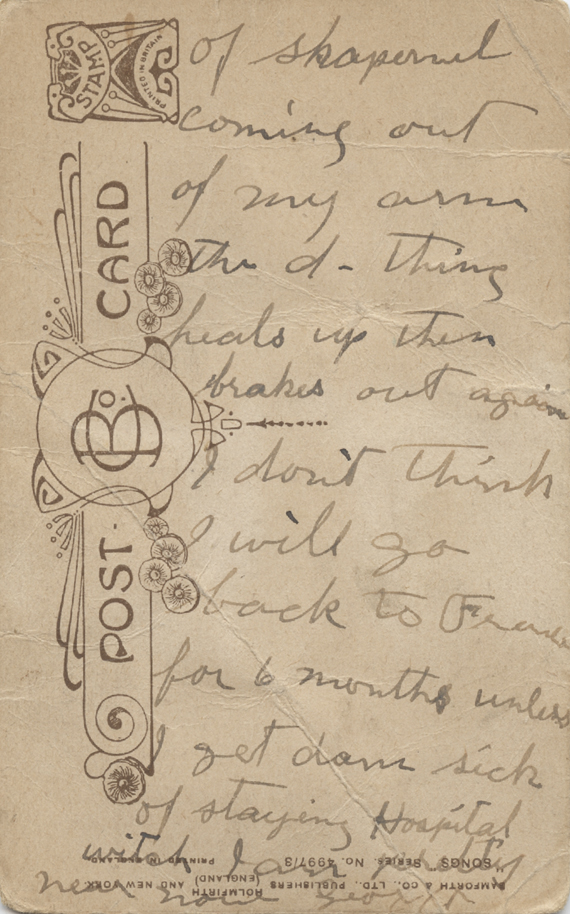 of skapernel
coming out
of my arm
the d- thing
heals up then
brakes out again
I don't think
I will go
back to France
for 6 months unless
I get dam sick
of staying Hospital
witch I am pretty
near now George
STAMP
PRINTED IN BRITAIN
POST CARD
B Co.
BAMFORTH & CO., LTD., PUBLISHERS HOLMFIRTH (ENGLAND) AND NEW YORK
"SONGS" SERIES. No. 4997/3
PRINTED IN ENGLAND